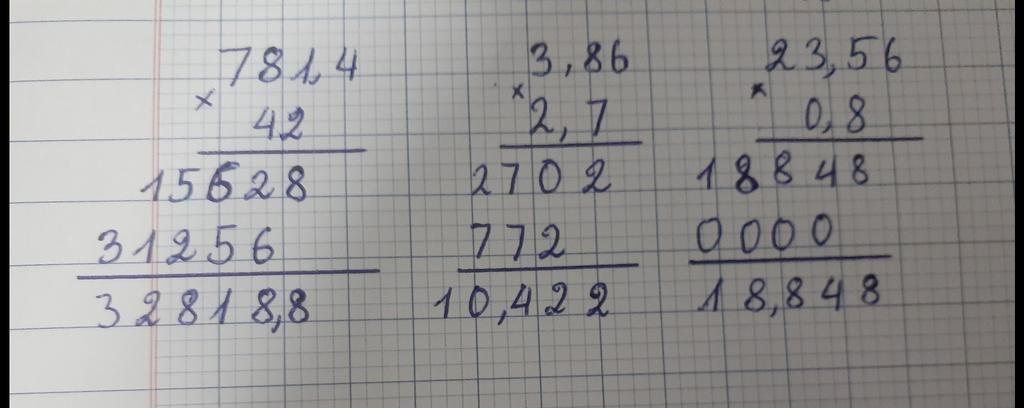 781,4
× 42
15628
31256
32818,8
3,86
× 2,7
2702
772
10,422
23,56
× 0,8
18848
0000
18,848